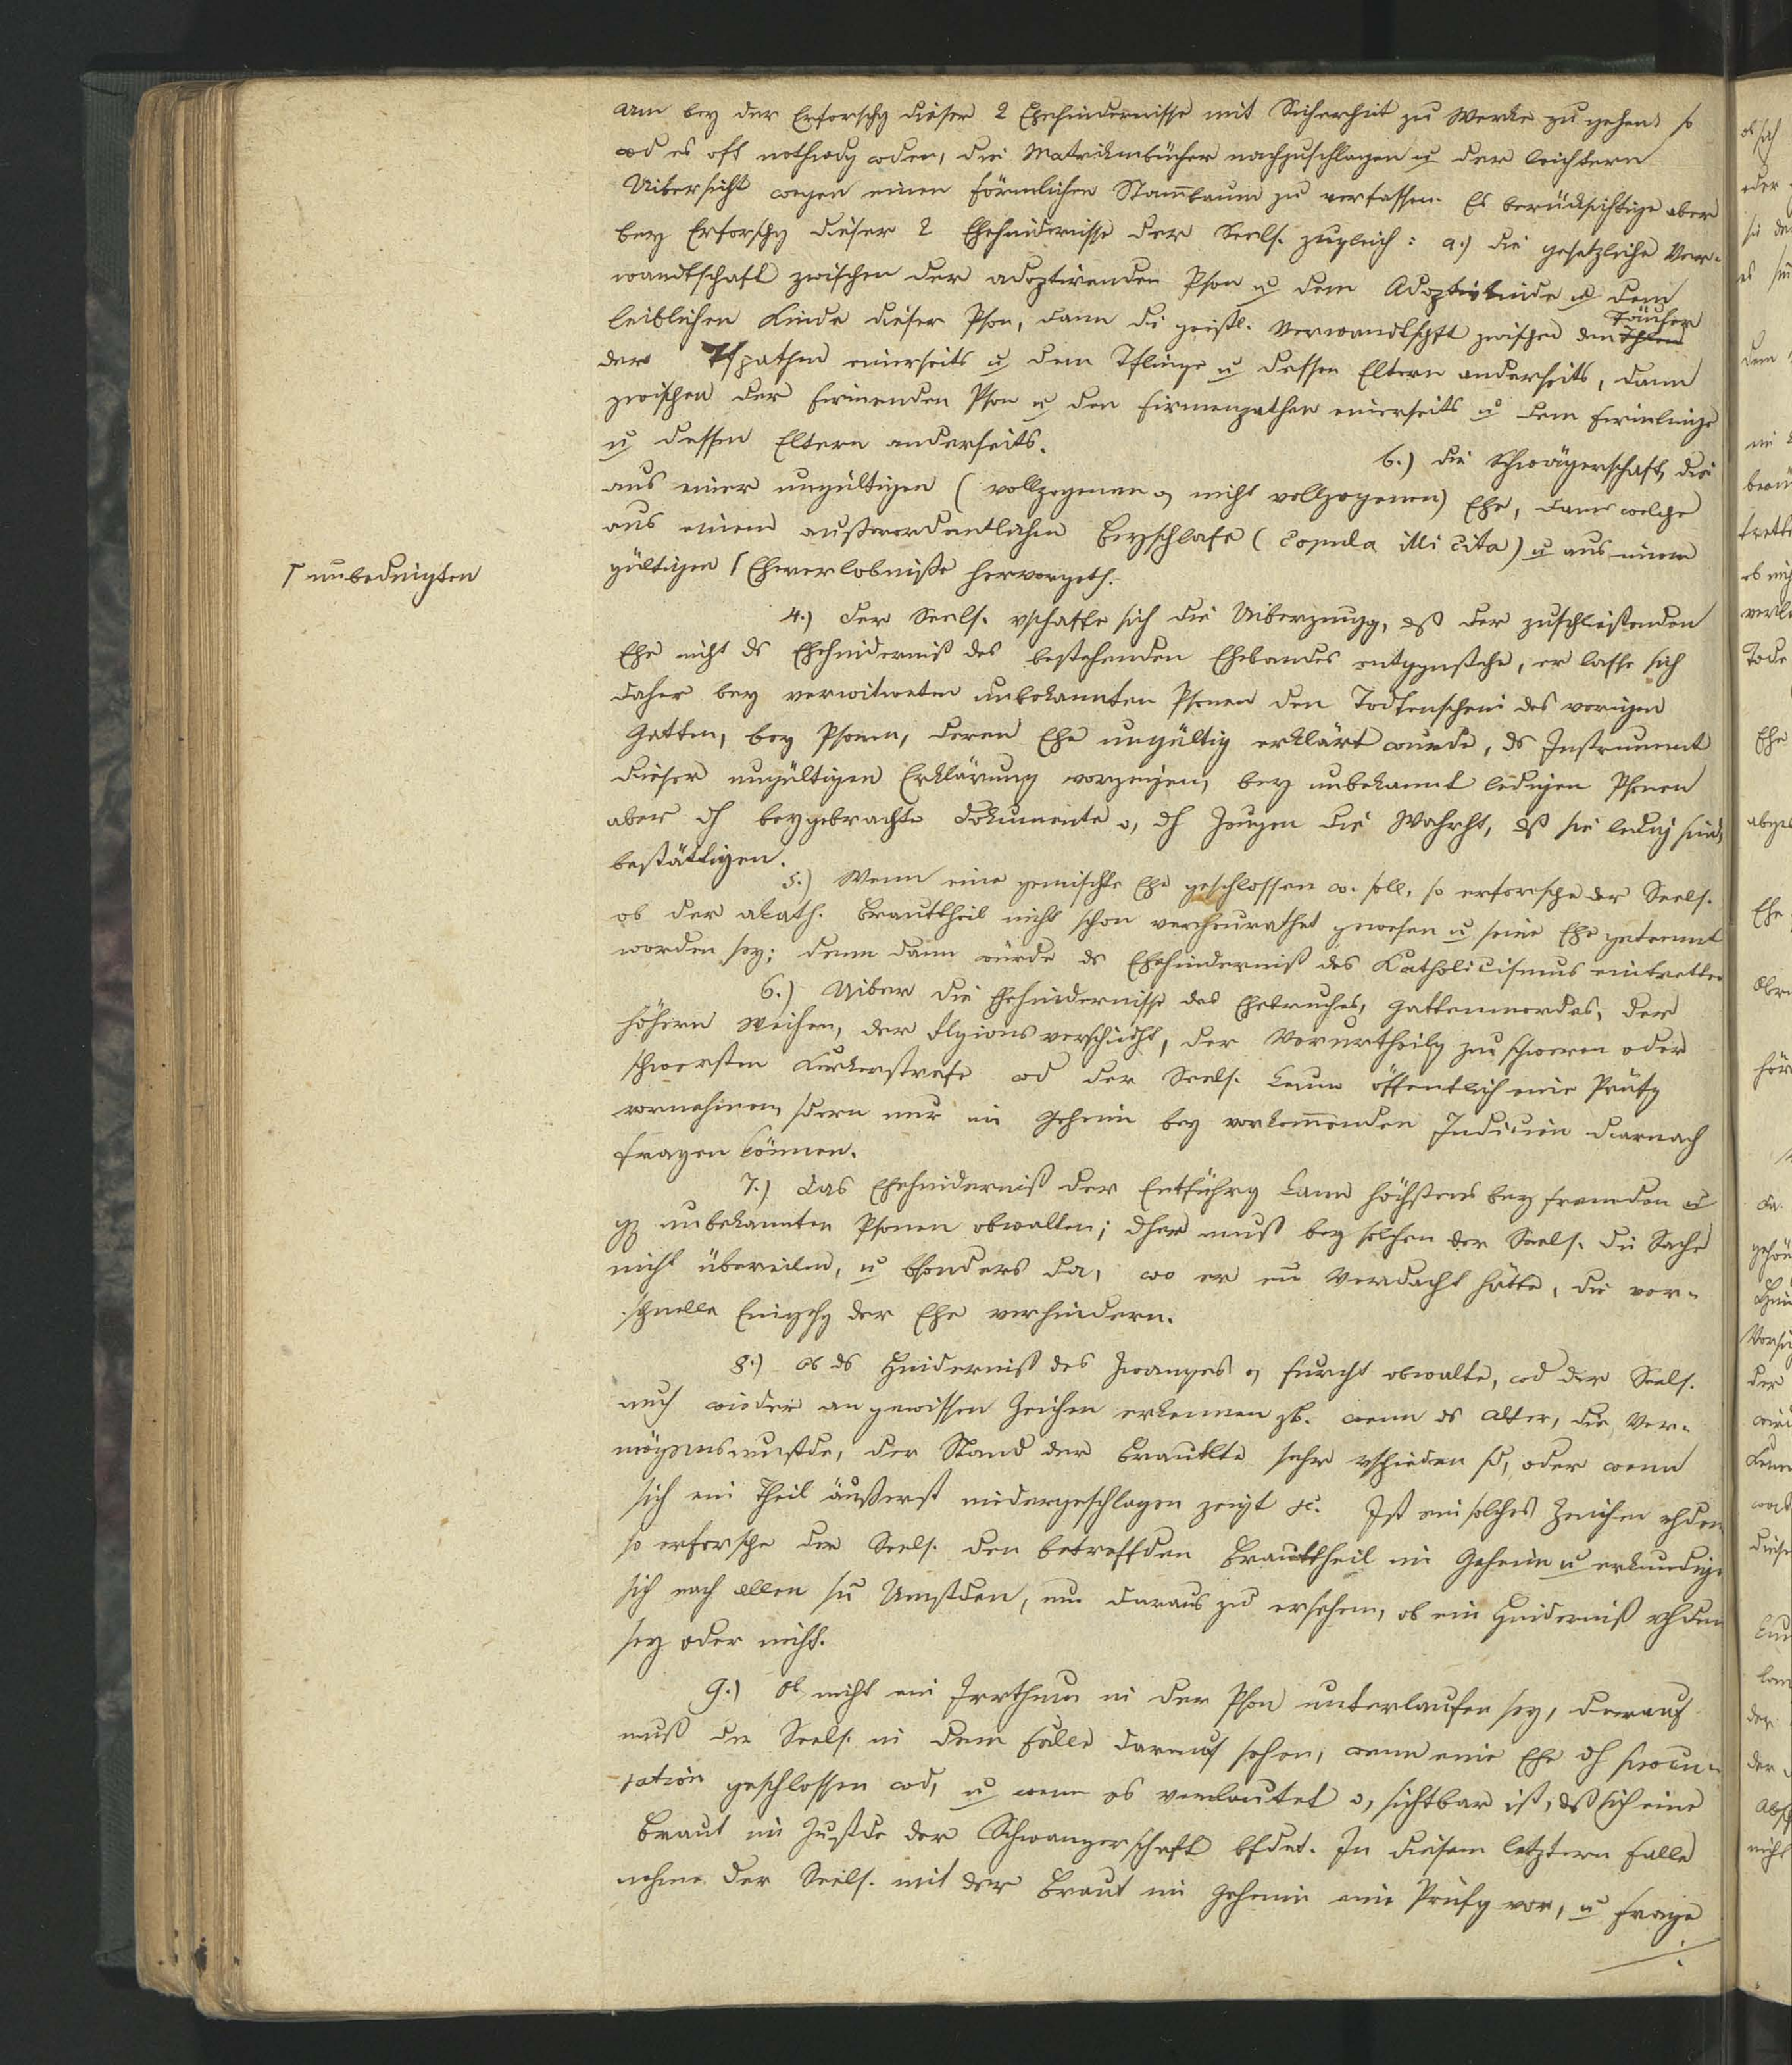 Um bey der Erforschg dieser 2 Ehehindernisse mit Sicherheit zu Werke zu gehen, so
wd es oft nothwdg wden, die Matrikenbücher nachzuschlagen u der leichtern
Uibersicht wegen einen förmlichen Stam̄baum zu verfassen. Es berücksichtige aber
bey Erforschg dieser 2 Ehehindernisse der Seels. zugleich: a.) die gesetzliche Ver-
wandtschaft zwischen der adoptirenden Pson u dem Adoptivkinde u dem
leiblichen Kinde dieser Pson, dann die geistl. Verwandtschft zwischen dem
Täufer
der Tfpathen einerseits u dem Tflinge u dessen Eltern anderseits, dann
zwischen der firmenden Pson u den Firmenpathen einerseits u dem Firmlinge
u dessen Eltern anderseits.
b.) die Schwägerschaft, die
aus einer ungültigen (vollzogenen o, nicht vollzogenen) Ehe, dann welche
aus einem außerordentlichen Beyschlafe (Copula illicita) u aus einem
gültigen ⌈ Eheverlobniße hervorgeth.
⌈ unbedingten
4.) Der Seels. vschaffe sich die Uiberzeugg, dß der zuschließenden
Ehe nicht ds Ehehinderniß des bestehenden Ehebandes entggenstehe, er lasse sich
daher bey verwitweten unbekannten Psonen den Todtenschein des vorigen
Gatten, bey Psonen, deren Ehe ungültig erklärt wurde, ds Instrument
dieser ungültigen Erklärung vorzeigen, bey unbekannt ledigen Psonen
aber dh beygebrachte Dokumente o, dh Zeugen die Wahrht, dß sie ledig sind,
bestättigen.
5.) Wenn eine gemischte Ehe geschlossen w. soll, so erforsche der Seels.
ob der akath. Brauttheil nicht schon verheurathet gewesen u seine Ehe getrennt
worden sey; denn dann würde ds Ehehinderniß des Katholicismus eintretten
6.) Uiber die Ehehindernisse des Ehebruches, Gattenmordes, der
höhern Weihen, der Rlgionsverschiedht, der Verurtheilg zur schweren oder
schwersten Kerkerstrafe wd der Seels. kaum öffentlich eine Prüfg
vornehmen, sdern nur in Geheim bey vorkom̄enden Indicien darnach
fragen können.
7.) Das Ehehinderniß der Entführg kann höchstens bey fremden u
gz unbekannten Psonen obwalten; dher muß bey solchen der Seels. die Sache
nicht übereilen, u bsonders da, wo er ein Verdacht hätte, die vor-
schnelle Eingehg der Ehe verhindern.
8.) Ob ds Hinderniß des Zwanges o, Furcht obwalte, wd der Seels.
auch wieder an gewissen Zeichen erkennen zb. wenn ds Alter, die Ver-
mögensumstde, der Stand der Brautlte sehr vschieden sd, oder wenn
sich ein Theil äußerst niedergeschlagen zeigt &c. Ist ein solches Zeichen vhden
so erforsche der Seels. den betreffden Brauttheil in Geheim u erkundige
sich nach allen sn̄ Umstden, um daraus zu ersehen, ob ein Hinderniß vhden
sey oder nicht.
9.) Ob nicht ein Irrthum in der Pson unterlaufen sey, darauf
muß der Seels. in dem Falle darauf sehen, wenn eine Ehe dh procu-
ration geschlossen wd, u wenn es verlautet o, sichtbar ist, dß sich eine
Braut im Zustde der Schwangerschaft bfdet. In diesem letztern Falle
nehme der Seels. mit der Braut in Geheim eine Prüfg vor, u frage